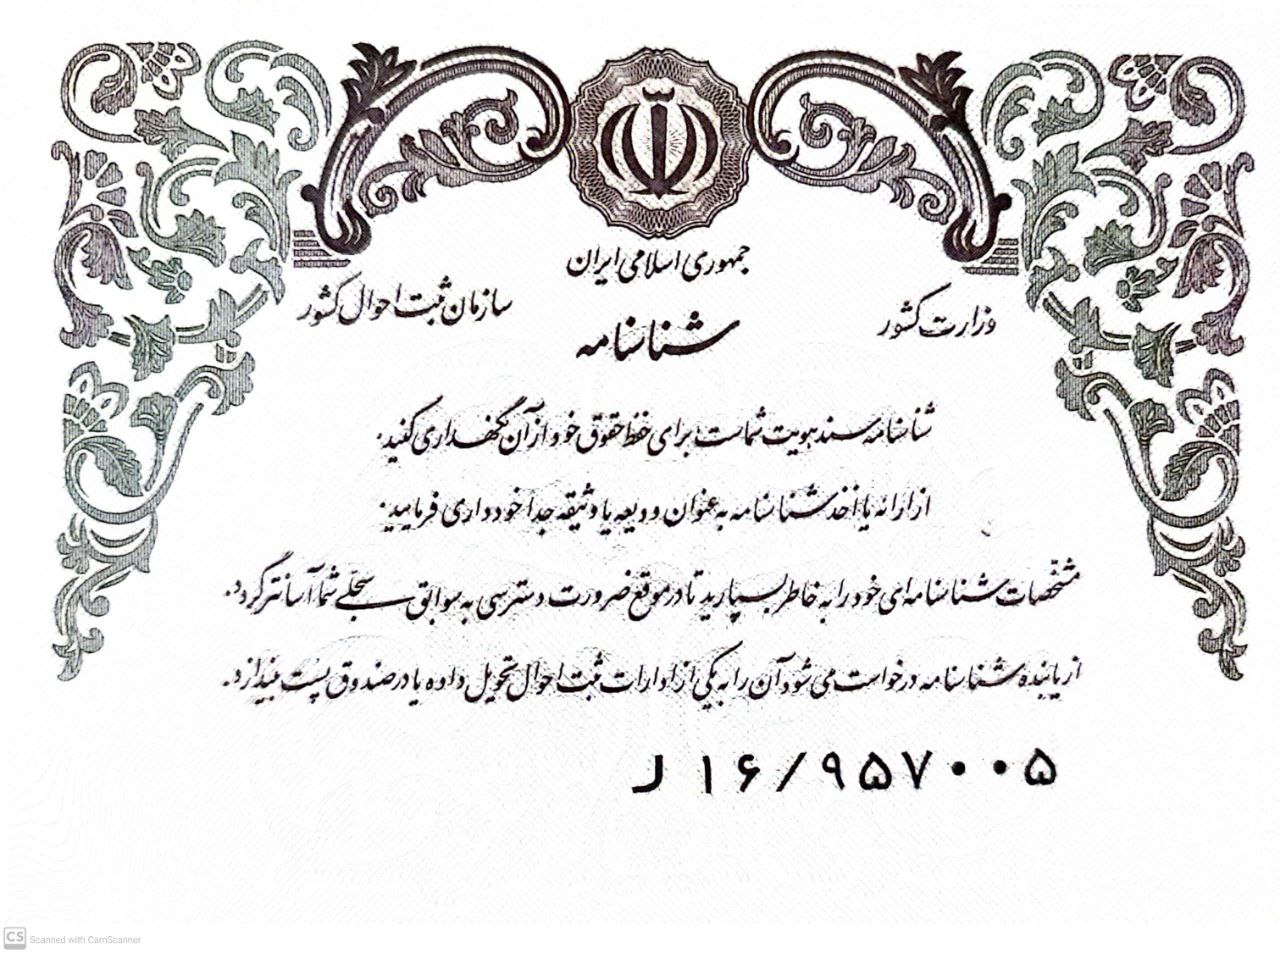 جمهوری اسلامی ایران
وزارت کشور
سازمان ثبت احوال کشور
شناسنامه
شناسنامه سند هویت شماست برای حفظ حقوق خود از آن نگهداری کنید.
از ارائه یا اخذ شناسنامه به عنوان ودیعه یا وثیقه جداً خودداری فرمایید.
مشخصات شناسنامه‌ای خود را به خاطر بسپارید تا در موقع ضرورت دسترسی به سوابق سجلی شما آسانتر گردد.
از یابنده شناسنامه درخواست می‌شود آن را به یکی از ادارات ثبت احوال تحویل داده یا در صندوق پست بیندازد.
ل ۱۶/۹۵۷۰۰۵
CS Scanned with CamScanner